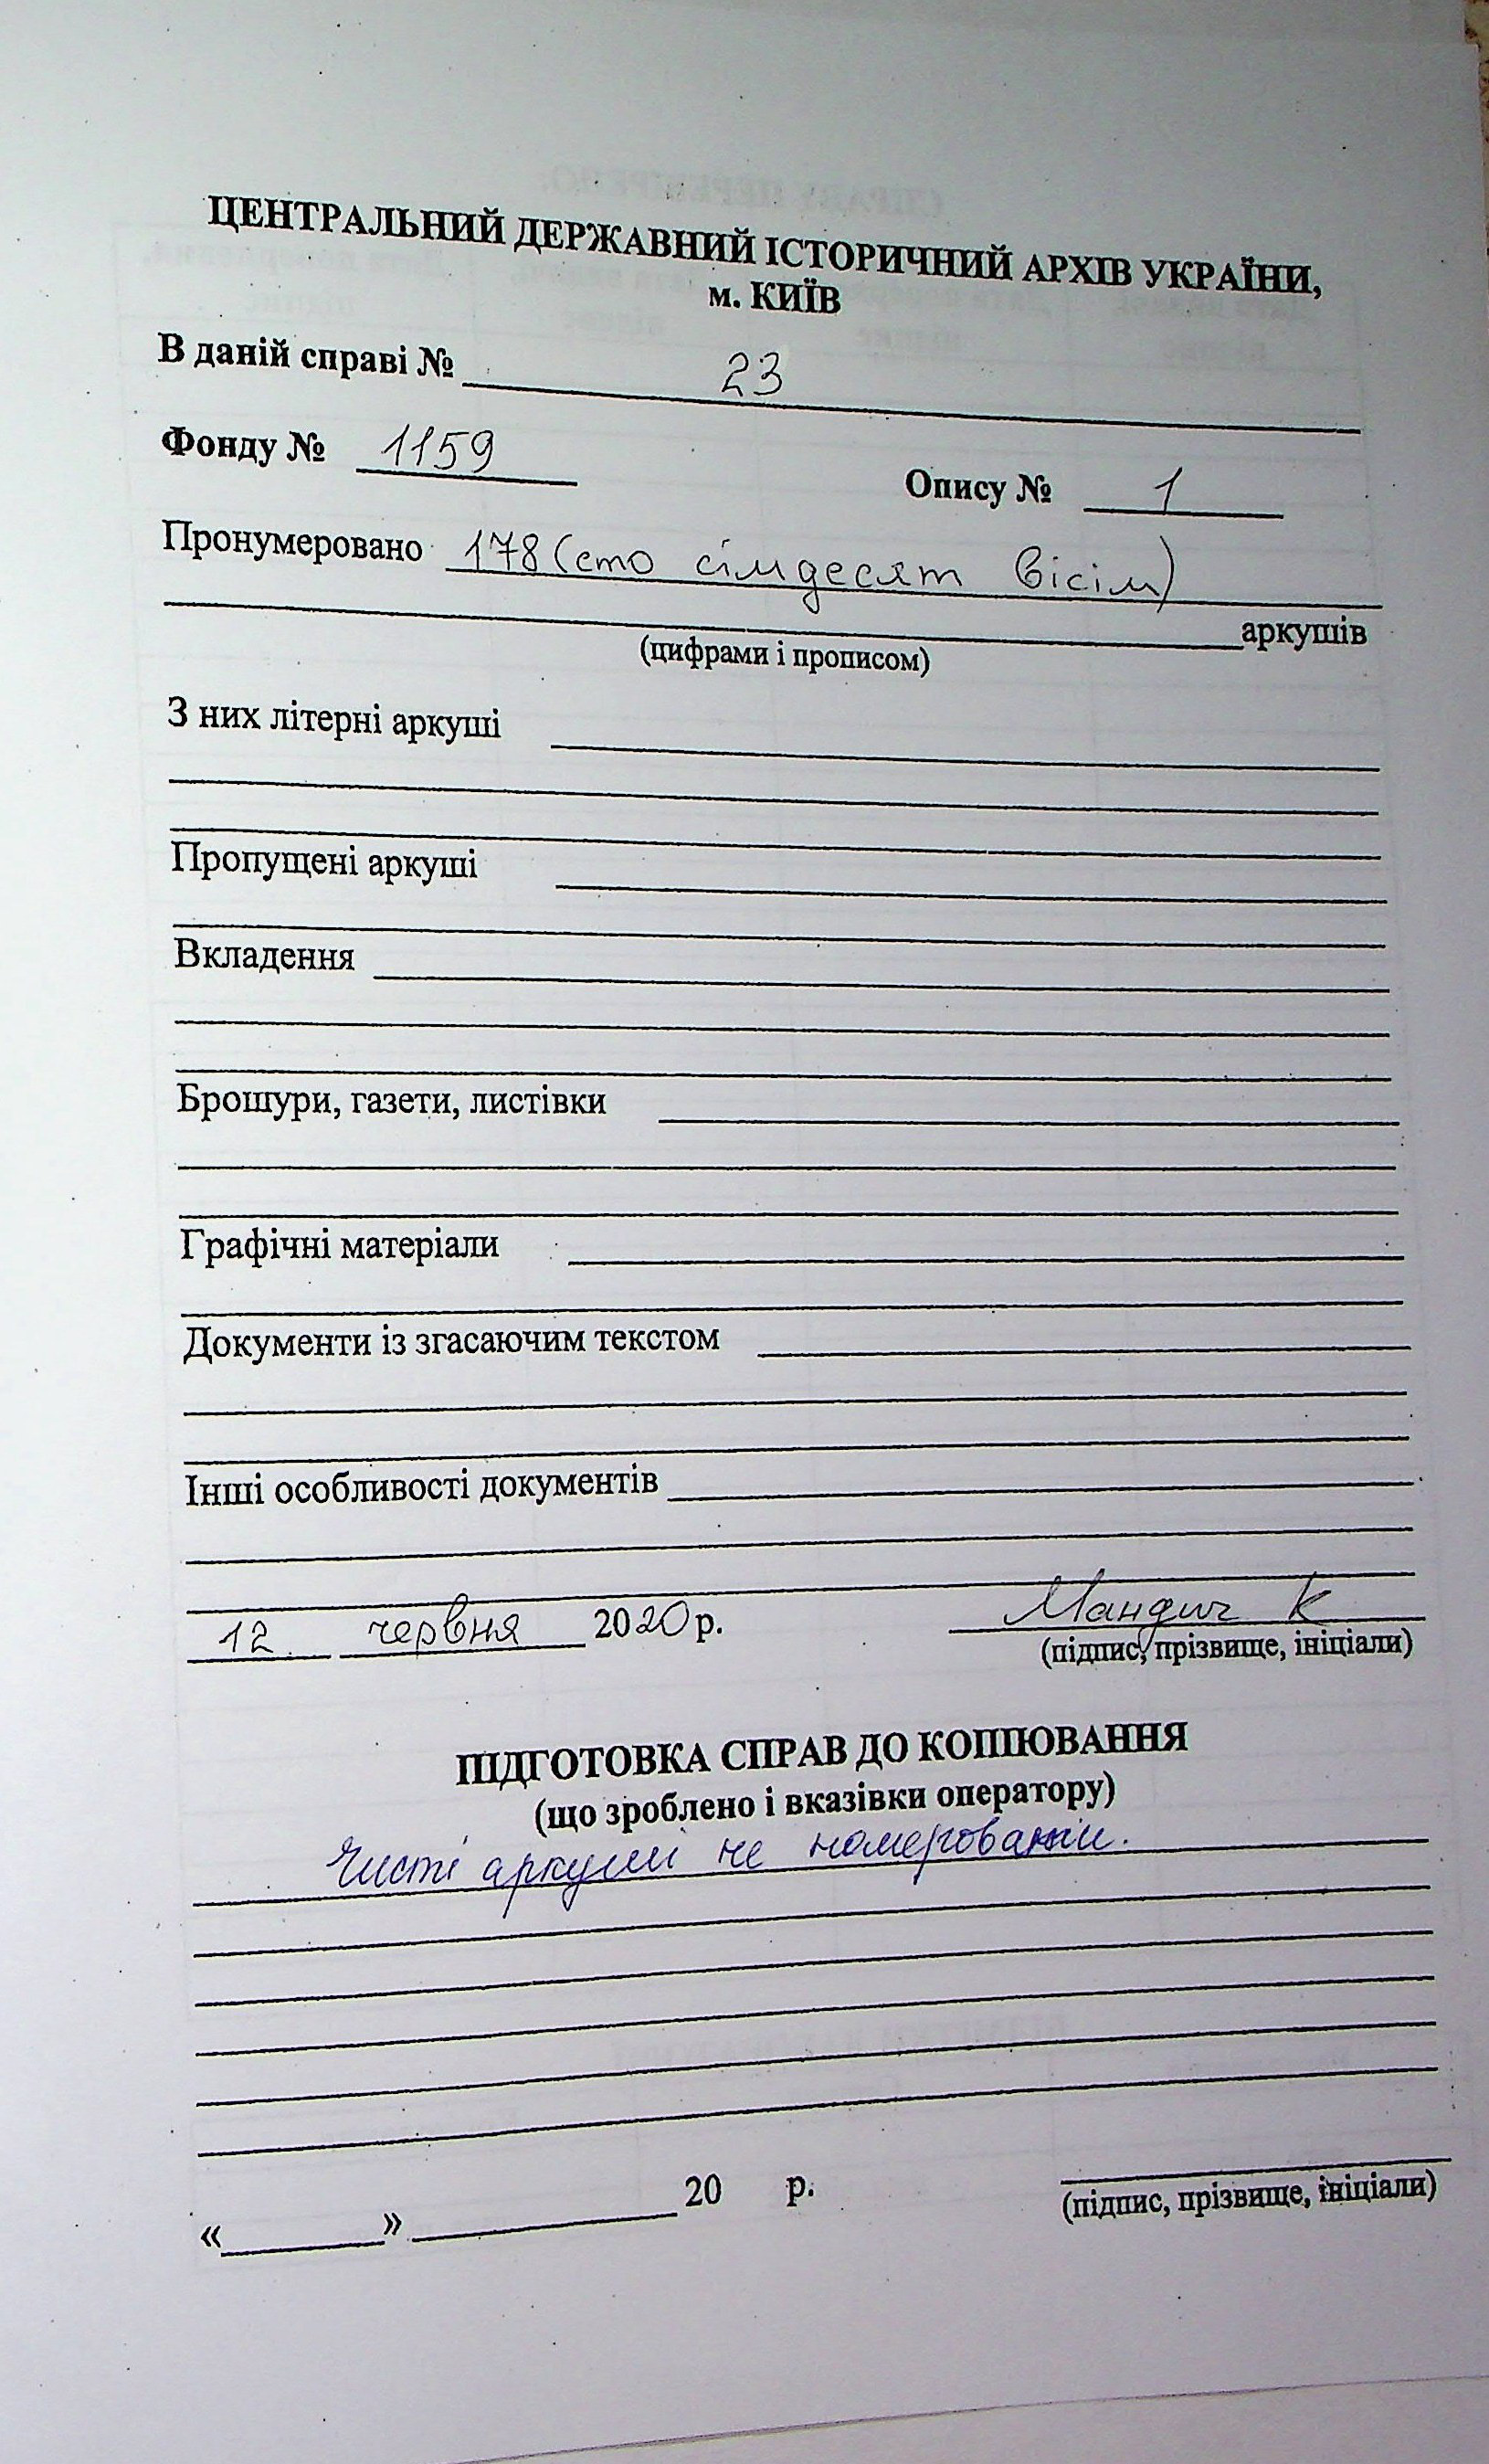 ЦЕНТРАЛЬНИЙ ДЕРЖАВНИЙ ІСТОРИЧНИЙ АРХІВ УКРАЇНИ,
м. КИЇВ
В даній справі № 23
Фонду № 1159 Опису № 1
Пронумеровано 178 (сто сімдесят вісім)
аркушів
(цифрами і прописом)
З них літерні аркуші
Пропущені аркуші
Вкладення
Брошури, газети, листівки
Графічні матеріали
Документи із згасаючим текстом
Інші особливості документів
12 червня 2020 р. Мандич К
(підпис, прізвище, ініціали)
ПІДГОТОВКА СПРАВ ДО КОПІЮВАННЯ
(що зроблено і вказівки оператору)
Чисті аркуші не номеровані.
«______» ____________ 20 р.
(підпис, прізвище, ініціали)